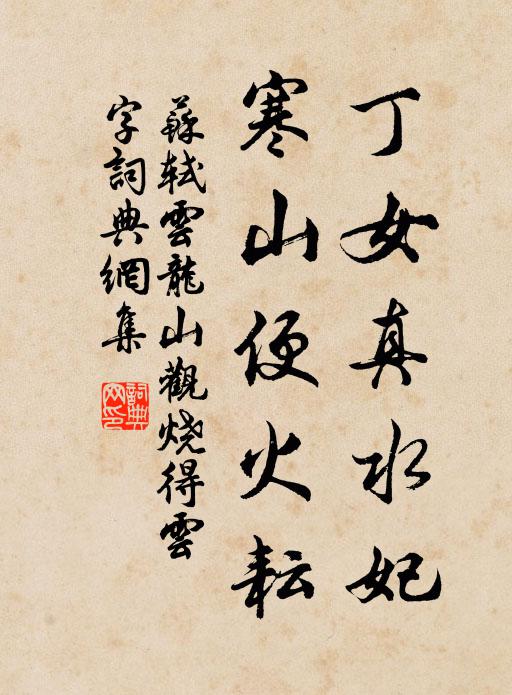 丁女真水妃
寒山便火耘
蘇軾雲龍山觀燒得雲
字詞典網集
詞典
网印